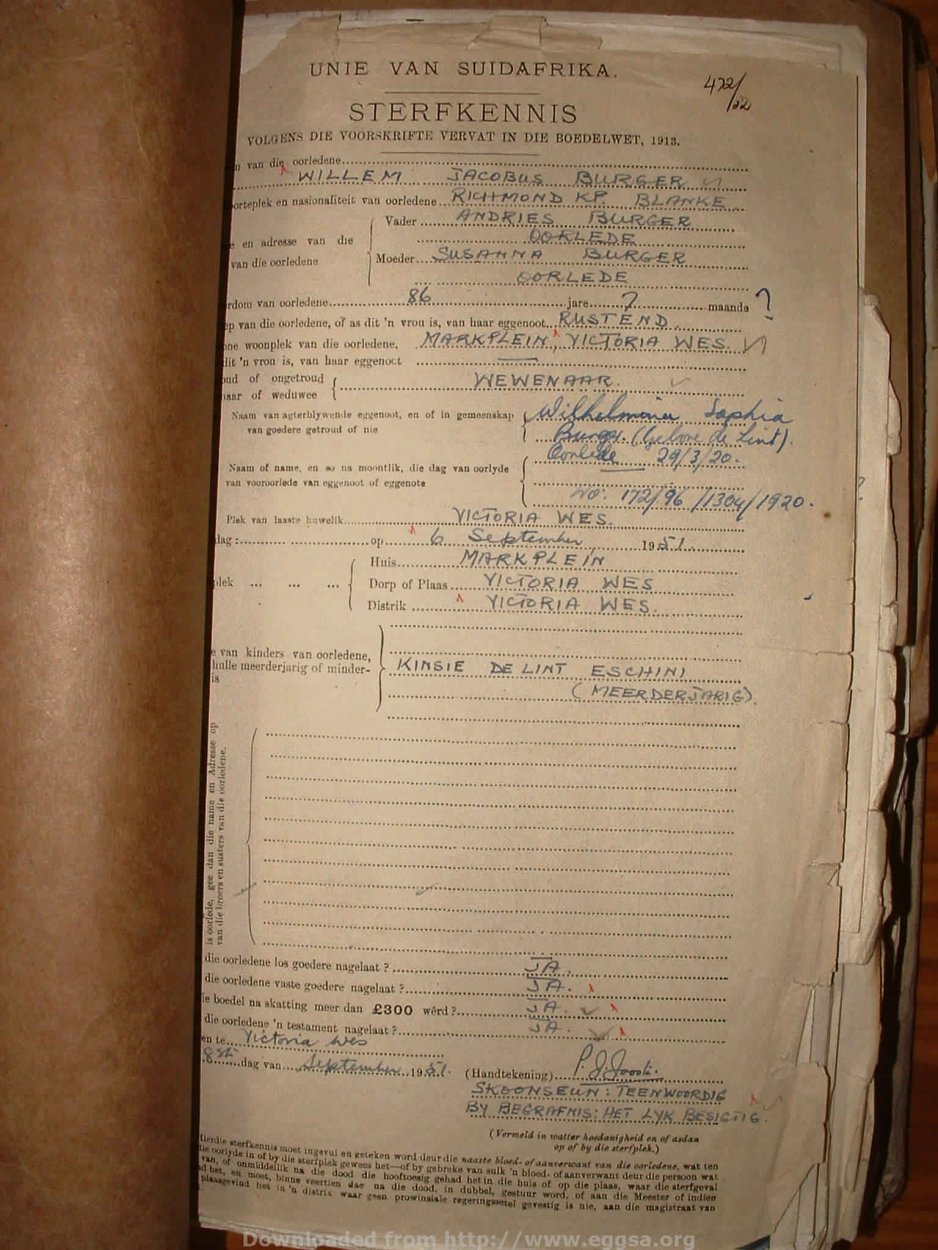 UNIE VAN SUIDAFRIKA.
472/52
STERFKENNIS
VOLGENS DIE VOORSKRIFTE VERVAT IN DIE BOEDELWET, 1913.
van die oorledene
WILLEM JACOBUS BURGER
orteplek en nasionaliteit van oorledene RICHMOND KP. BLANKE
Vader ANDRIES BURGER
e en adresse van die OORLEDE
van die oorledene Moeder SUSANNA BURGER
OORLEDE
rdom van oorledene 86 jare 7 maande ?
ep van die oorledene, of as dit 'n vrou is, van haar eggenoot RUSTEND
one woonplek van die oorledene, MARKPLEIN, VICTORIA WES.
dit 'n vrou is, van haar eggenoot
oud of ongetroud WEWENAAR.
aar of weduwee
Naam van agterblywende eggenoot, en of in gemeenskap Wilhelmina Sophia
van goedere getroud of nie Burger (Gebore de Lint).
Oorlede 29/3/20.
Naam of name, en so na moontlik, die dag van oorlyde
van vooroorlede van eggenoot of eggenote
No. 172/96/1304/1920.
Plek van laaste huwelik VICTORIA WES.
dag: op 6 September 1951.
Huis MARKPLEIN
plek ... ... ... Dorp of Plaas VICTORIA WES
Distrik VICTORIA WES.
e van kinders van oorledene,
hulle meerderjarig of minder- KINSIE DE LINT ESCHINI
is (MEERDERJARIG)
is oorlede, gee dan die name en Adresse op
van die broers en susters van die oorledene.
die oorledene los goedere nagelaat ? JA.
die oorledene vaste goedere nagelaat ? JA.
ie boedel na skatting meer dan £300 wêrd ? JA.
die oorledene 'n testament nagelaat ? JA.
en te Victoria Wes
8ste dag van September 1951. (Handtekening) P. J.
SKOONSEUN: TEENWOORDIG
BY BEGRAFNIS: HET LYK BESIGTIG.
(Vermeld in watter hoedanigheid en of asdan
op of by die sterfplek.)
Hierdie sterfkennis moet ingevul en geteken word deur die naaste bloed- of aanverwant van die oorledene, wat ten
oorlyde in of by die sterfplek gewees het—of by gebreke van sulk 'n bloed- of aanverwant deur die persoon wat
van, of onmiddellik na die dood die hooftoesig gehad het in die huis of op die plaas, waar die sterfgeval
het, en moet, binne veertien dae na die dood, in dubbel, gestuur word, of aan die Meester of indien
plaasgevind het in 'n distrik waar geen provinsiale regeringssetel gevestig is nie, aan die magistraat van
Downloaded from http://www.eggsa.org